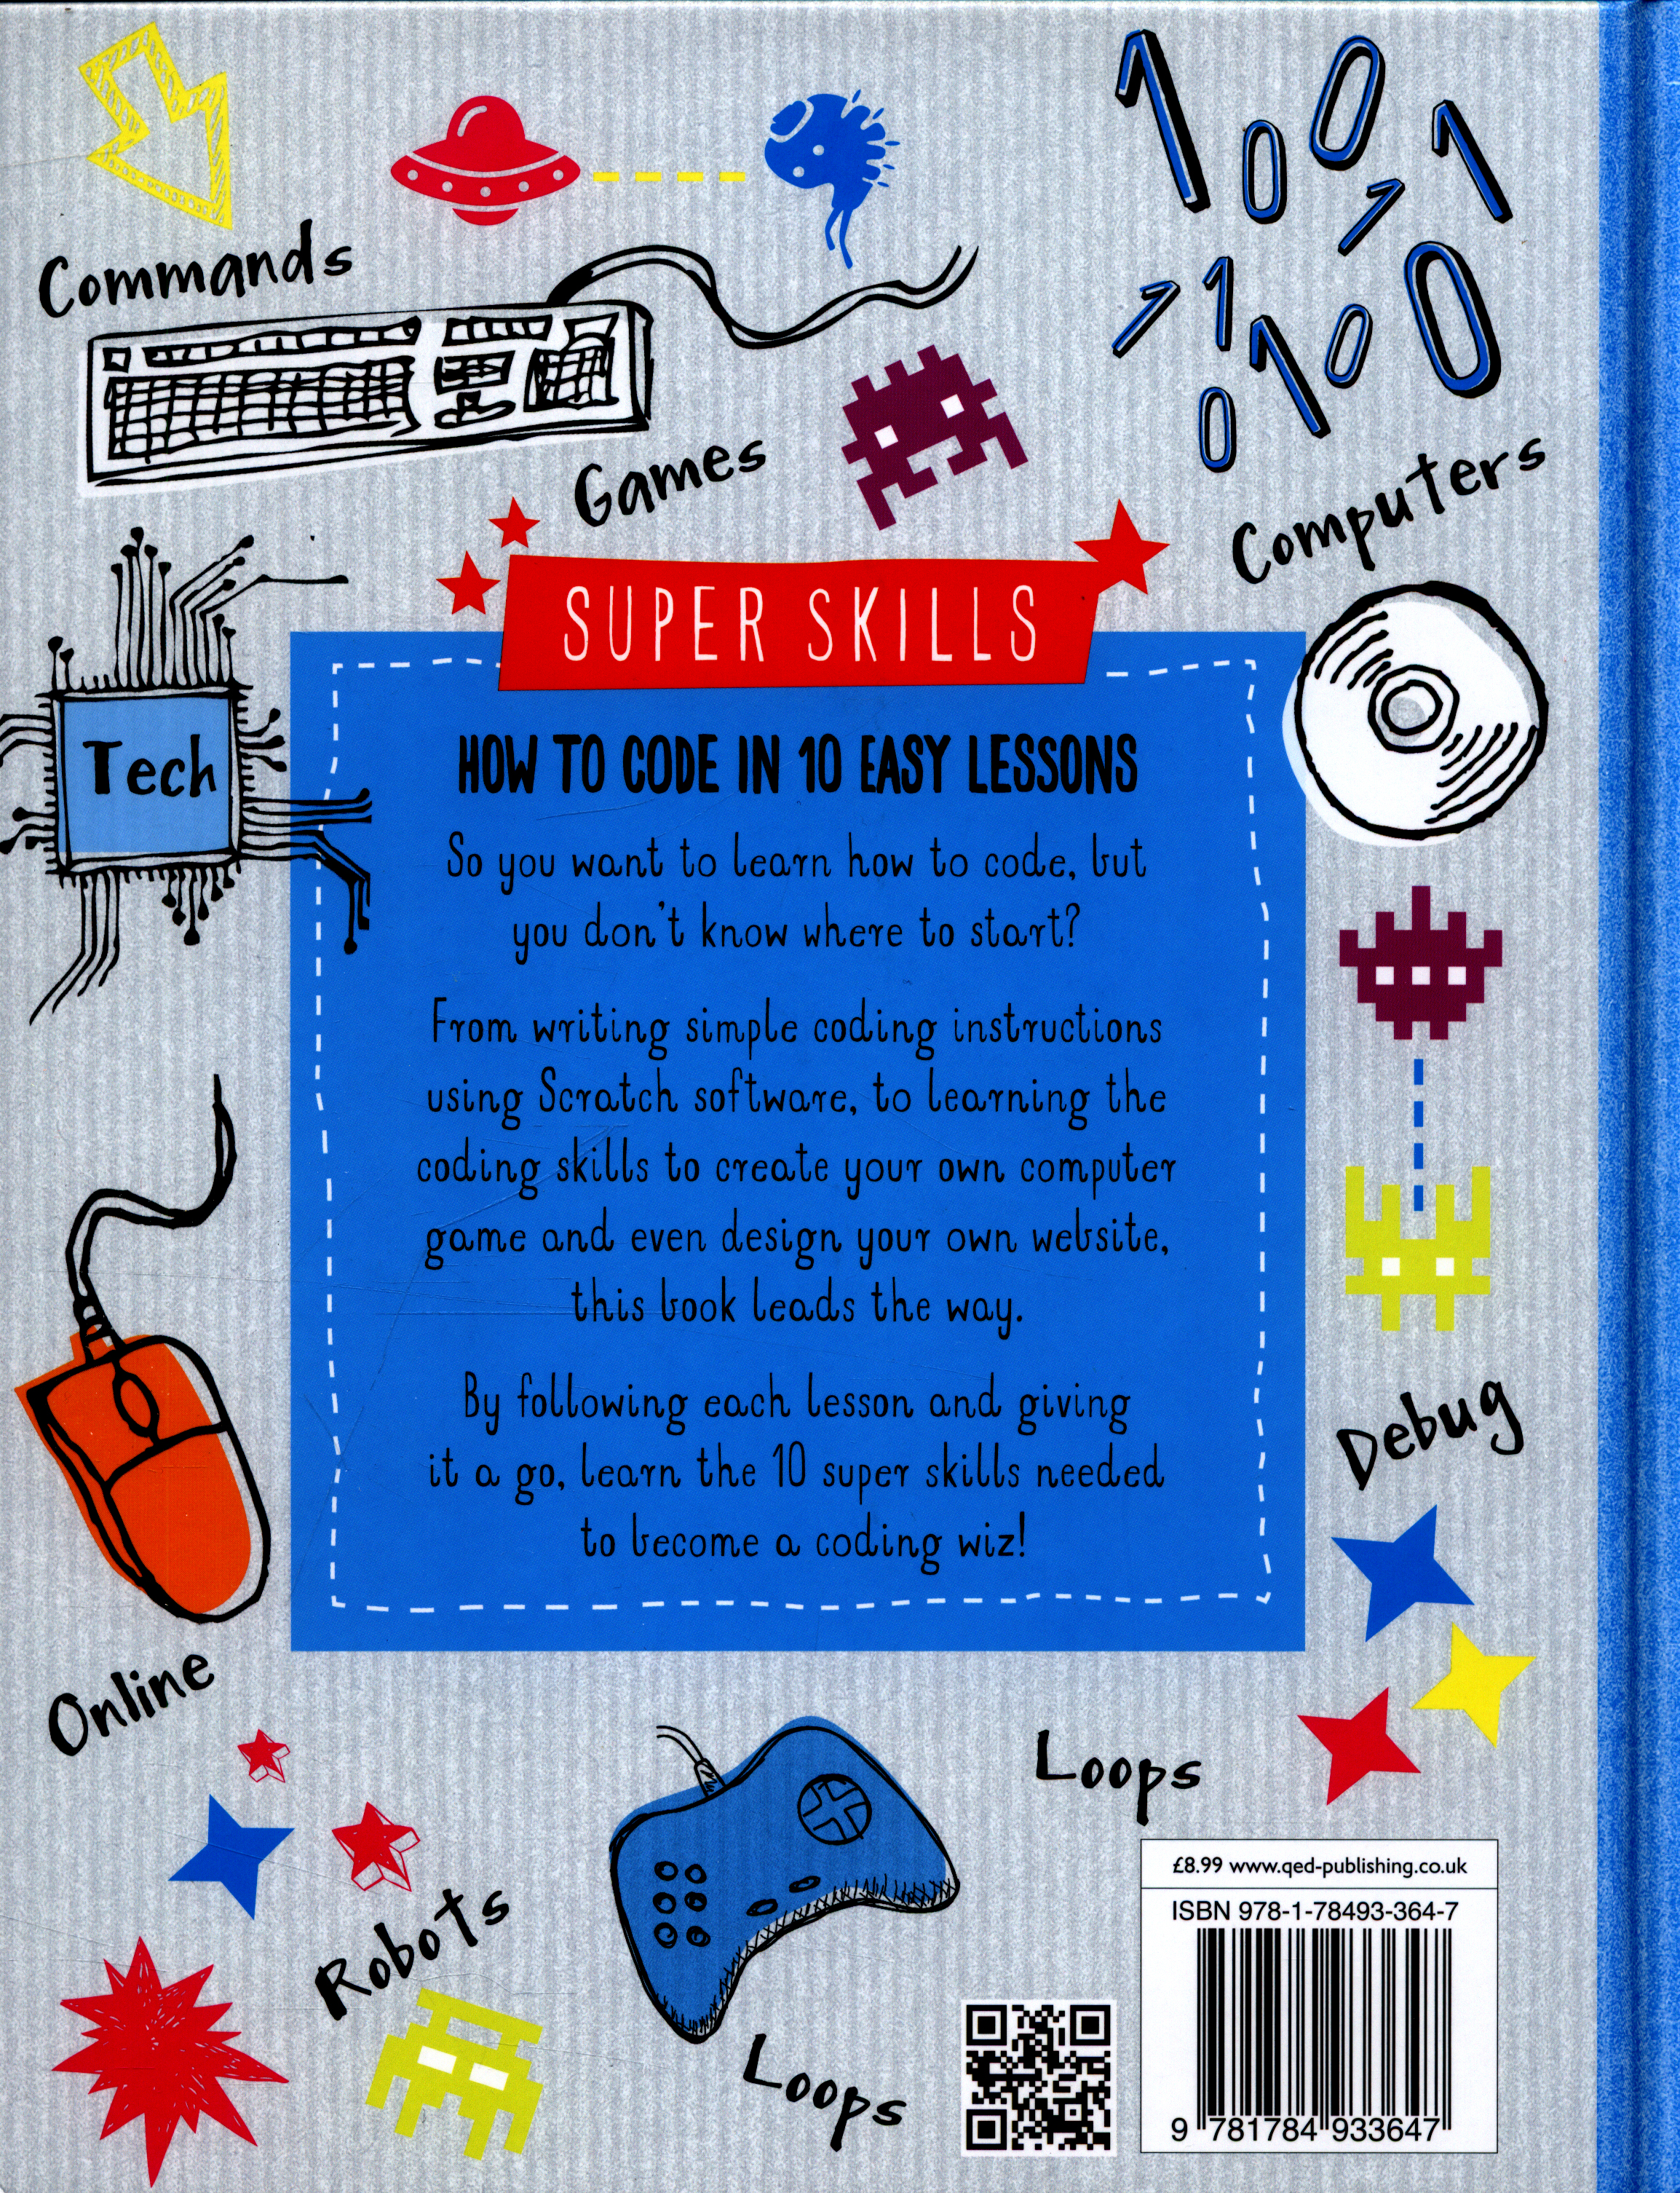 Commands
Games
Computers
Tech
SUPER SKILLS
HOW TO CODE IN 10 EASY LESSONS
So you want to learn how to code, but
you don't know where to start?
From writing simple coding instructions
using Scratch software, to learning the
coding skills to create your own computer
game and even design your own website,
this book leads the way.
By following each lesson and giving
it a go, learn the 10 super skills needed
to become a coding wiz!
Debug
Online
Loops
Robots
Loops
£8.99 www.qed-publishing.co.uk
ISBN 978-1-78493-364-7
9 781784 933647
1 0 0 1
1
1 1 0 1 0 0
0